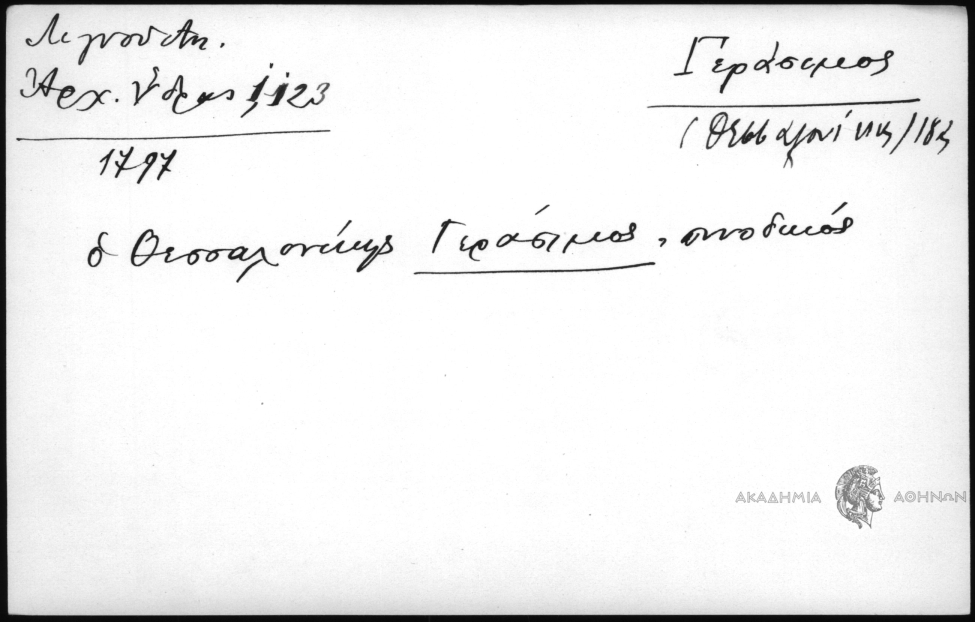 Λιγνού Αντ.
Ἀρχ. Ὕδρας 1, 123
1797
Γεράσιμος
(Θεσσαλονίκης) 18
ὁ Θεσσαλονίκης Γεράσιμος, συνοδικός
ΑΚΑΔΗΜΙΑ ΑΘΗΝΩΝ